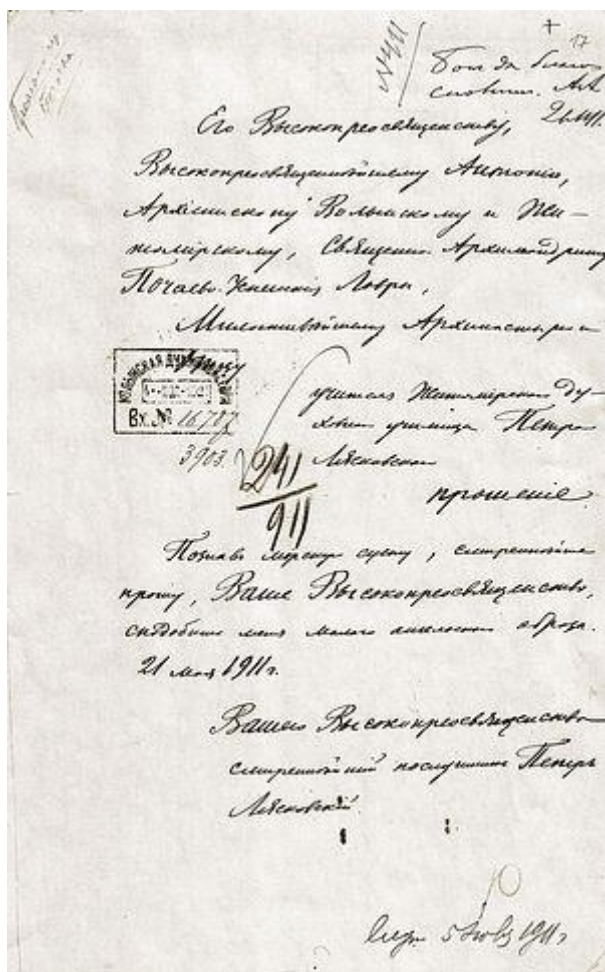 17
№ 411
Бог да благо
словит. АА
Его Высокопреосвященству,
Высокопреосвященнѣйшему Антонію,
Архіепископу Волынскому и Жи-
томірскому, Священно-Архимандриту
Почаево-Успенскія Лавры,
Милостивѣйшему Архипастырю и
ВОЛЫНСКАЯ
Вх. № 16707
3903
241
911
учителя Житомірскаго Ду-
ховнаго училища Петра
прошеніе.
Познавъ мерзную суету, смиреннѣйше
прошу, Ваше Высокопреосвященство,
сподобите меня малаго ангельскаго образа.
21 мая 1911 г.
Вашего Высокопреосвященства
смиреннѣйшій послушникъ Петръ
1911 г